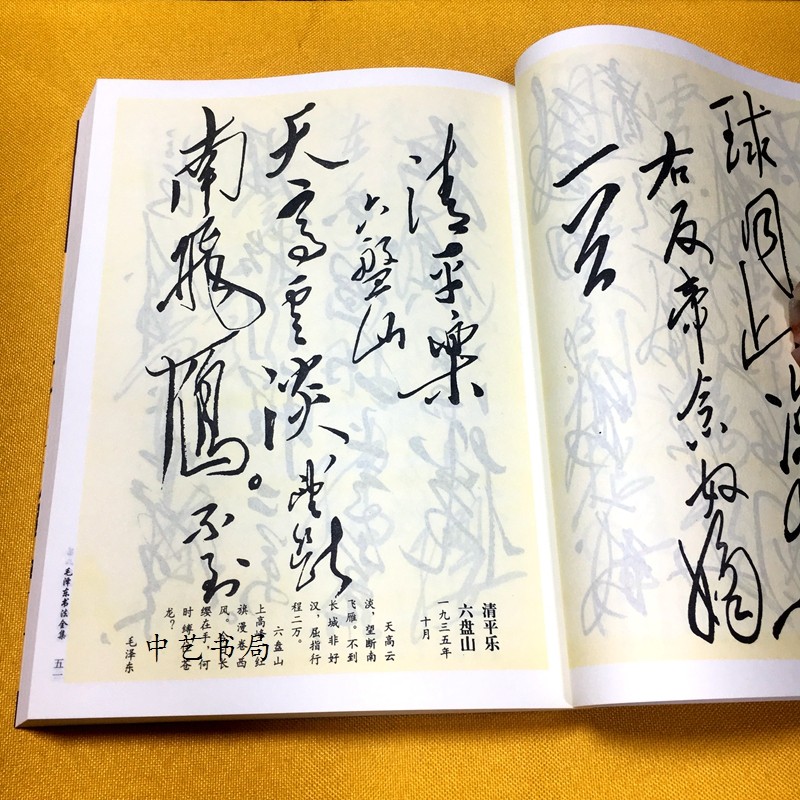 球同此涼
右反帝念奴嬌
一首
清平樂
六盤山
天高雲淡望斷
南飛鴈。不到
清平乐
六盘山
一九三五年
十月
天高云
淡，望断南
飞雁。不到
长城非好
汉，屈指行
程二万。
六盘山
上高峰，红
旗漫卷西
风。今日长
缨在手，何
时缚住苍
龙？
毛泽东
毛泽东书法全集
五一
中艺书局